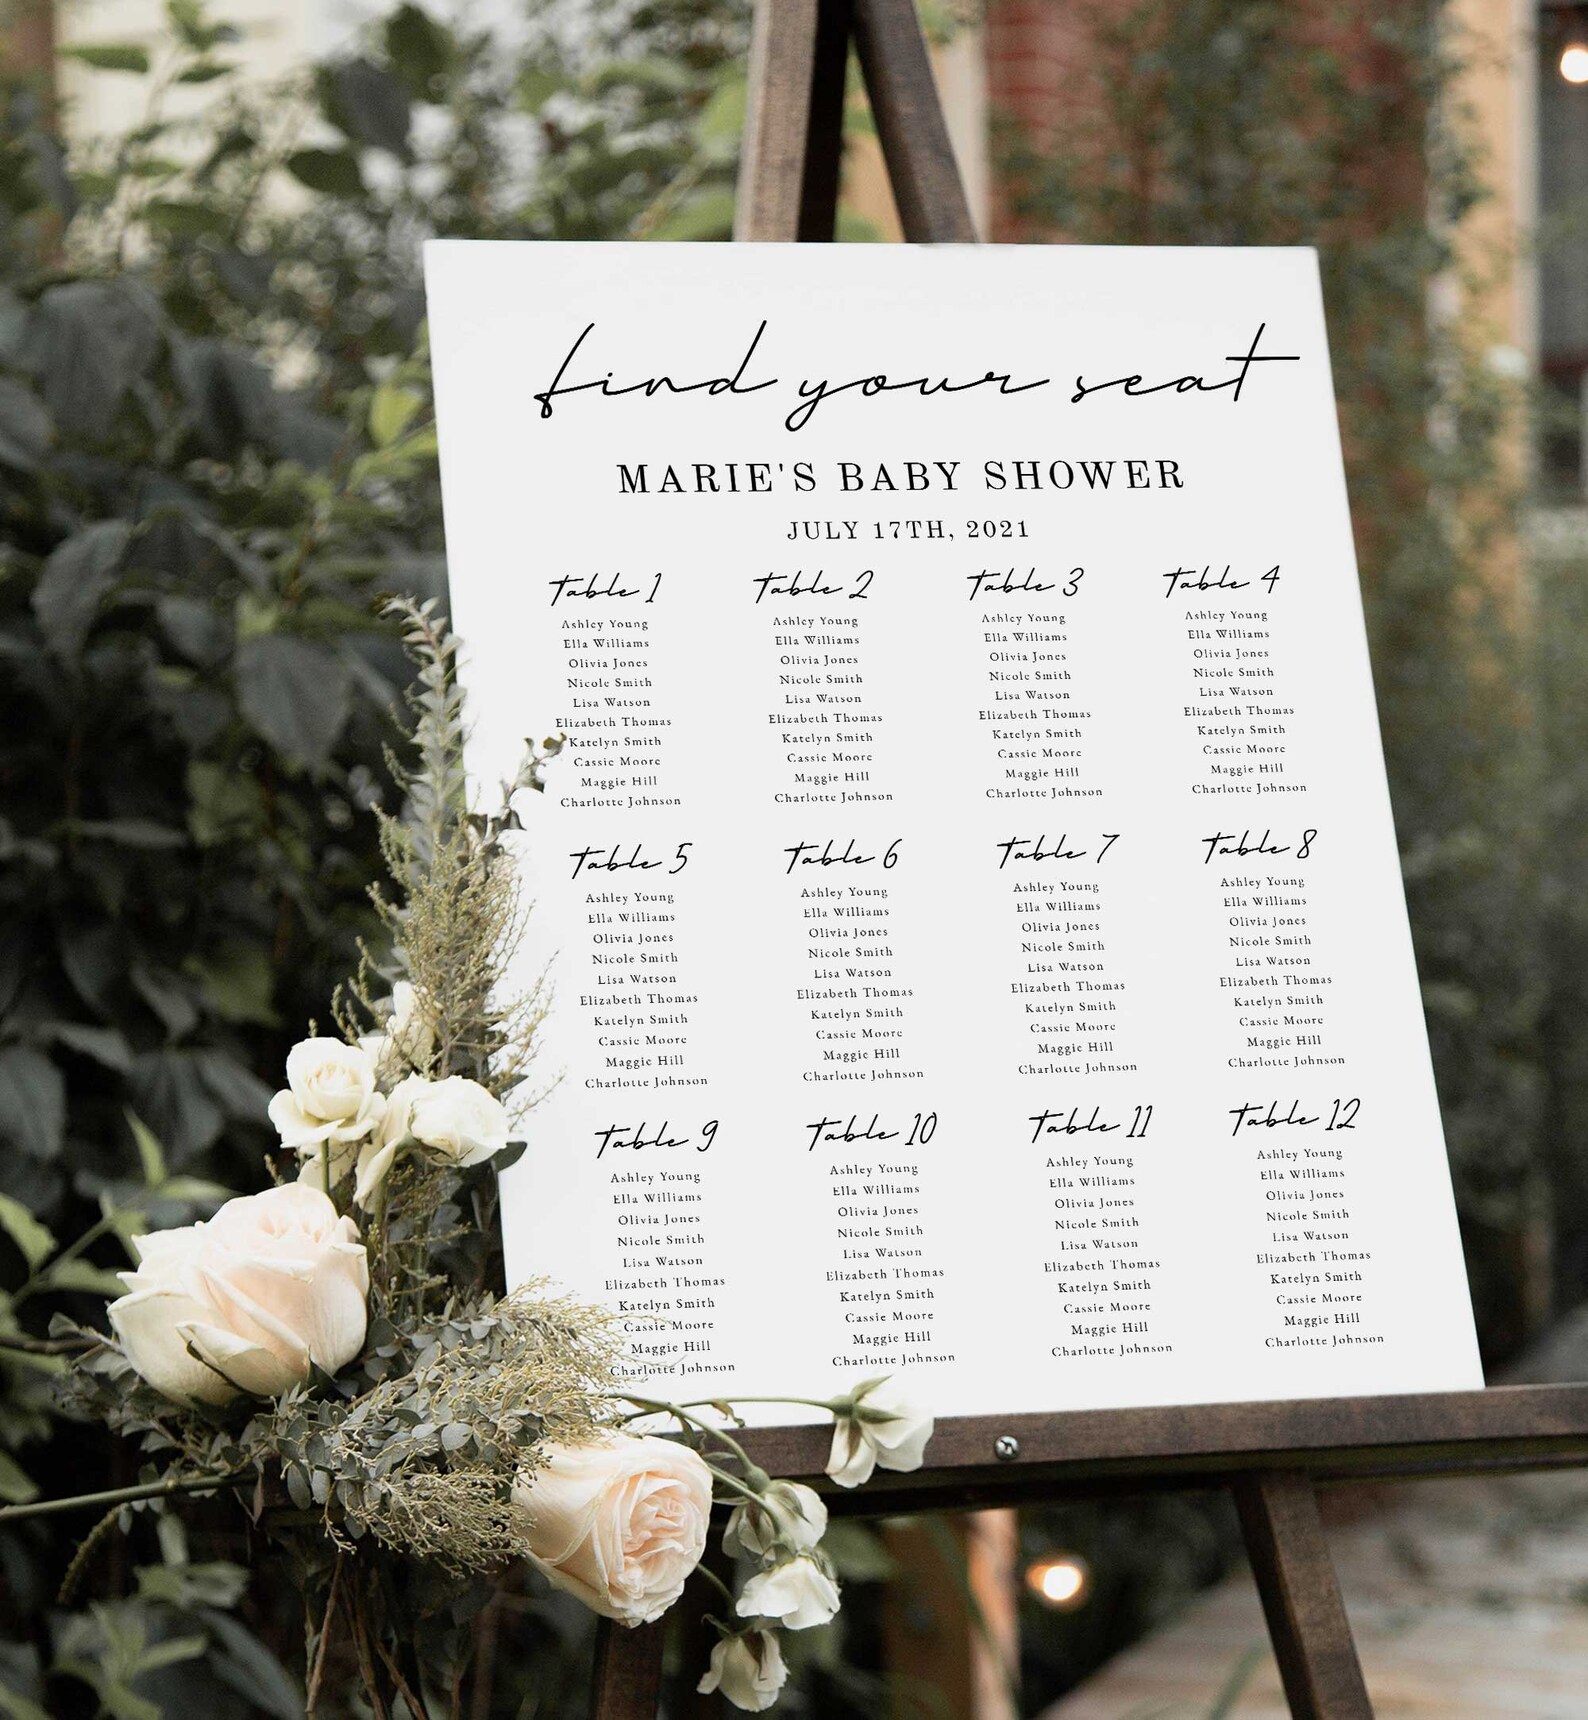 find your seat
MARIE'S BABY SHOWER
JULY 17TH, 2021
Table 1
Ashley Young
Ella Williams
Olivia Jones
Nicole Smith
Lisa Watson
Elizabeth Thomas
Katelyn Smith
Cassie Moore
Maggie Hill
Charlotte Johnson
Table 2
Ashley Young
Ella Williams
Olivia Jones
Nicole Smith
Lisa Watson
Elizabeth Thomas
Katelyn Smith
Cassie Moore
Maggie Hill
Charlotte Johnson
Table 3
Ashley Young
Ella Williams
Olivia Jones
Nicole Smith
Lisa Watson
Elizabeth Thomas
Katelyn Smith
Cassie Moore
Maggie Hill
Charlotte Johnson
Table 4
Ashley Young
Ella Williams
Olivia Jones
Nicole Smith
Lisa Watson
Elizabeth Thomas
Katelyn Smith
Cassie Moore
Maggie Hill
Charlotte Johnson
Table 5
Ashley Young
Ella Williams
Olivia Jones
Nicole Smith
Lisa Watson
Elizabeth Thomas
Katelyn Smith
Cassie Moore
Maggie Hill
Charlotte Johnson
Table 6
Ashley Young
Ella Williams
Olivia Jones
Nicole Smith
Lisa Watson
Elizabeth Thomas
Katelyn Smith
Cassie Moore
Maggie Hill
Charlotte Johnson
Table 7
Ashley Young
Ella Williams
Olivia Jones
Nicole Smith
Lisa Watson
Elizabeth Thomas
Katelyn Smith
Cassie Moore
Maggie Hill
Charlotte Johnson
Table 8
Ashley Young
Ella Williams
Olivia Jones
Nicole Smith
Lisa Watson
Elizabeth Thomas
Katelyn Smith
Cassie Moore
Maggie Hill
Charlotte Johnson
Table 9
Ashley Young
Ella Williams
Olivia Jones
Nicole Smith
Lisa Watson
Elizabeth Thomas
Katelyn Smith
Cassie Moore
Maggie Hill
Charlotte Johnson
Table 10
Ashley Young
Ella Williams
Olivia Jones
Nicole Smith
Lisa Watson
Elizabeth Thomas
Katelyn Smith
Cassie Moore
Maggie Hill
Charlotte Johnson
Table 11
Ashley Young
Ella Williams
Olivia Jones
Nicole Smith
Lisa Watson
Elizabeth Thomas
Katelyn Smith
Cassie Moore
Maggie Hill
Charlotte Johnson
Table 12
Ashley Young
Ella Williams
Olivia Jones
Nicole Smith
Lisa Watson
Elizabeth Thomas
Katelyn Smith
Cassie Moore
Maggie Hill
Charlotte Johnson